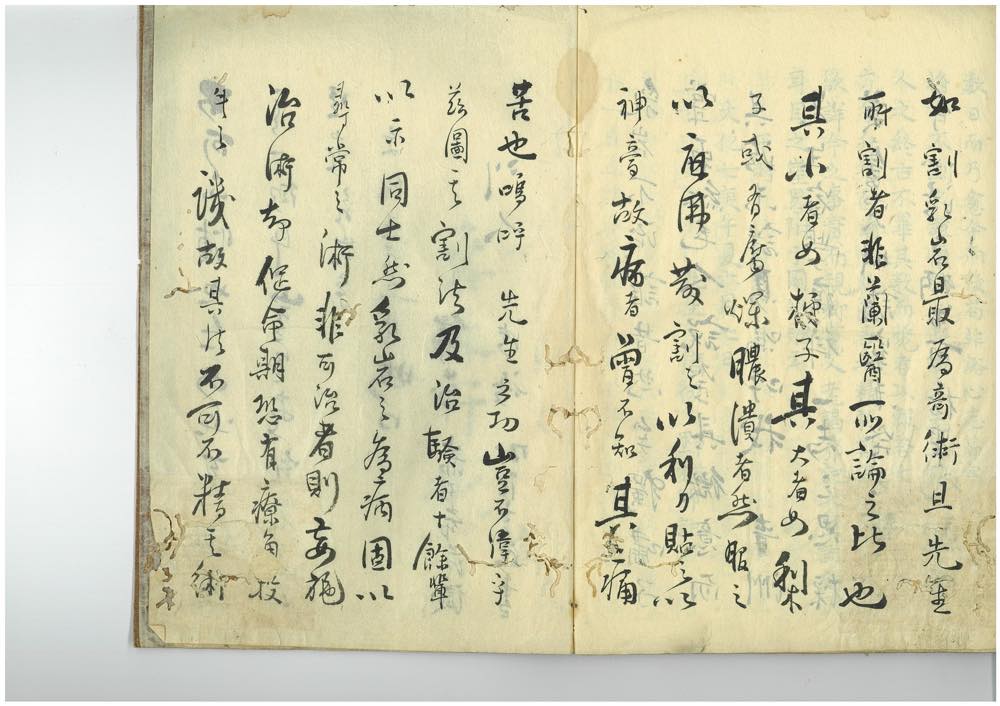 如割乳岩最為奇術且先生
所割者非蘭醫所論之比也
其小者如梅子其大者如梨
子或有腐爛膿潰者然服之
以麻沸散割之以利刀貼之以
神膏故病者曽不知其苦痛
苦也嗚呼先生之功豈不偉乎
茲圖其割法及治驗者十餘輩
以示同士然乳岩之為病固以
尋常之術非可治者則妄施
治術却促命期恐有療角投
牛之譏故其法不可不精其術